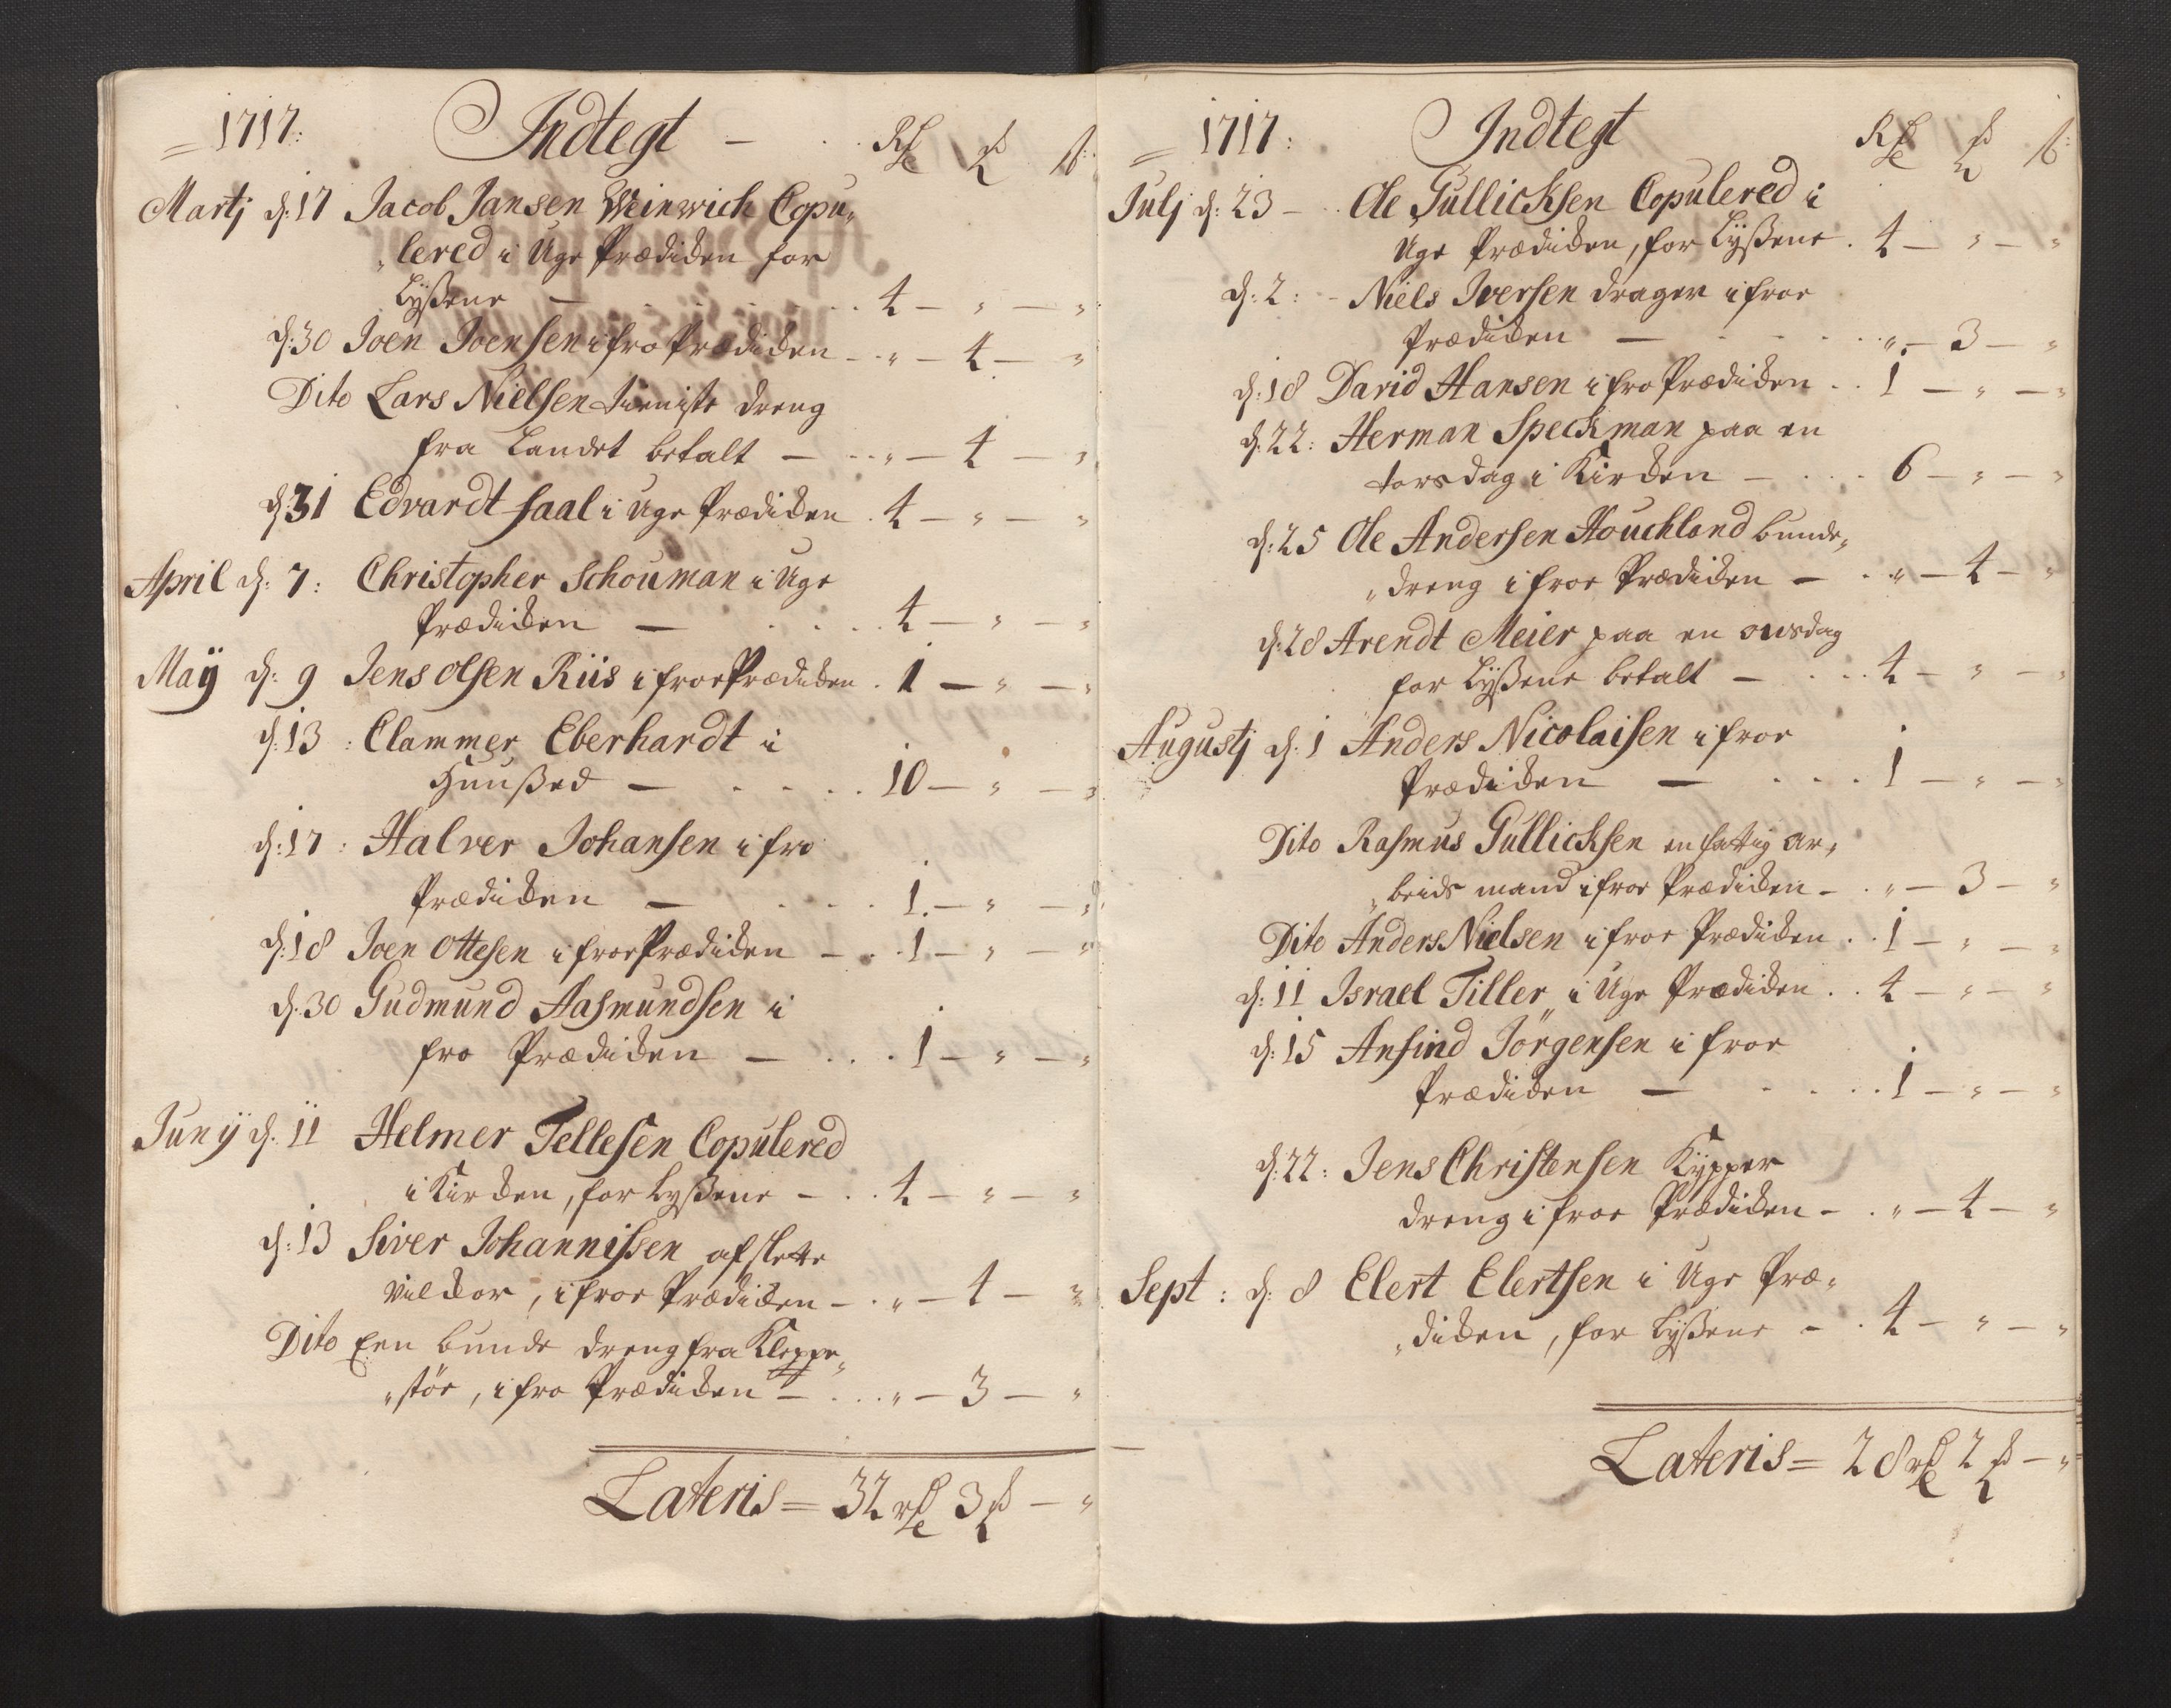 1717: Indtegt Rd ℳ ß:
Martj d: 17 Jacob Jansen Weinwich Copu„
„lered i Uge Prædiken for
Lyßene — 4 — „ — „
d: 30 Joen Joensen i fro Prædiken — „ — 4 — „
Dito Lars Nielsen tieniste dreng
fra Landet betalt — „ — 4 — „
d: 31 Edvardt Saal i Uge Prædiken 4 — „ — „
April d: 7: Christopher Schouman i Uge
Prædiken — 4 — „ — „
Maÿ d: 9 Jens Olsen Riis i froe Prædiken 1 — „ — „
d: 13: Clammer Eberhardt i
Huußed — 10 — „ — „
d: 17: Halver Johansen i fro
Prædiken — 1 — „ — „
d: 18 Joen Ottesen i froe Prædiken — 1 — „ — „
d: 30 Gudmund Aasmundsen i
fro Prædiken — 1 — „ — „
Junÿ d: 11 Helmer Tellesen Copulered
i Kirken, for Lyßene — 4 — „ — „
d: 13 Siver Johannissen af slette
vilckor, i froe Prædiken — „ — 4 — „
Dito Een bunde dreng fra Kleppe„
„stöe, i fro Prædiken — „ — 3 — „
Lateris = 32 rd 3 ℳ — „
1717: Indtegt Rd ℳ ß:
Julj d: 23 — Ole Gullicksen Copulered i
Uge Prædiken, for Lyßene 4 — „ — „
d: 2: — Niels Iversen drager i froe
Prædiken — „ — 3 — „
d: 18 David Hansen i fro Prædiken 1 — „ — „
d: 22: Herman Speckman paa en
torsdag i Kirken — 6 — „ — „
d: 25 Ole Andersen Houchland bunde„
„dreng i froe Prædiken — „ — 4 — „
d: 28 Arendt Meier paa en onsdag
for Lyßene betalt — 4 — „ — „
Augustj d: 1 Anders Nicolaisen i froe
Prædiken — 1 — „ — „
Dito Rasmus Gullicksen en fattig ar„
„beids mand i froe Prædiken — „ — 3 — „
Dito Anders Nielsen i froe Prædiken 1 — „ — „
d: 11 Israel Tiller i Uge Prædiken 4 — „ — „
d: 15 Ansind Jörgensen i froe
Prædiken — 1 — „ — „
d: 22: Jens Christensen Kypper
dreng i froe Prædiken — „ — 4 — „
Sept: d: 8 Elert Elertsen i Uge Præ„
„diken, for Lyßene — 4 — „ — „
Lateris = 28 rd 2 ℳ — „